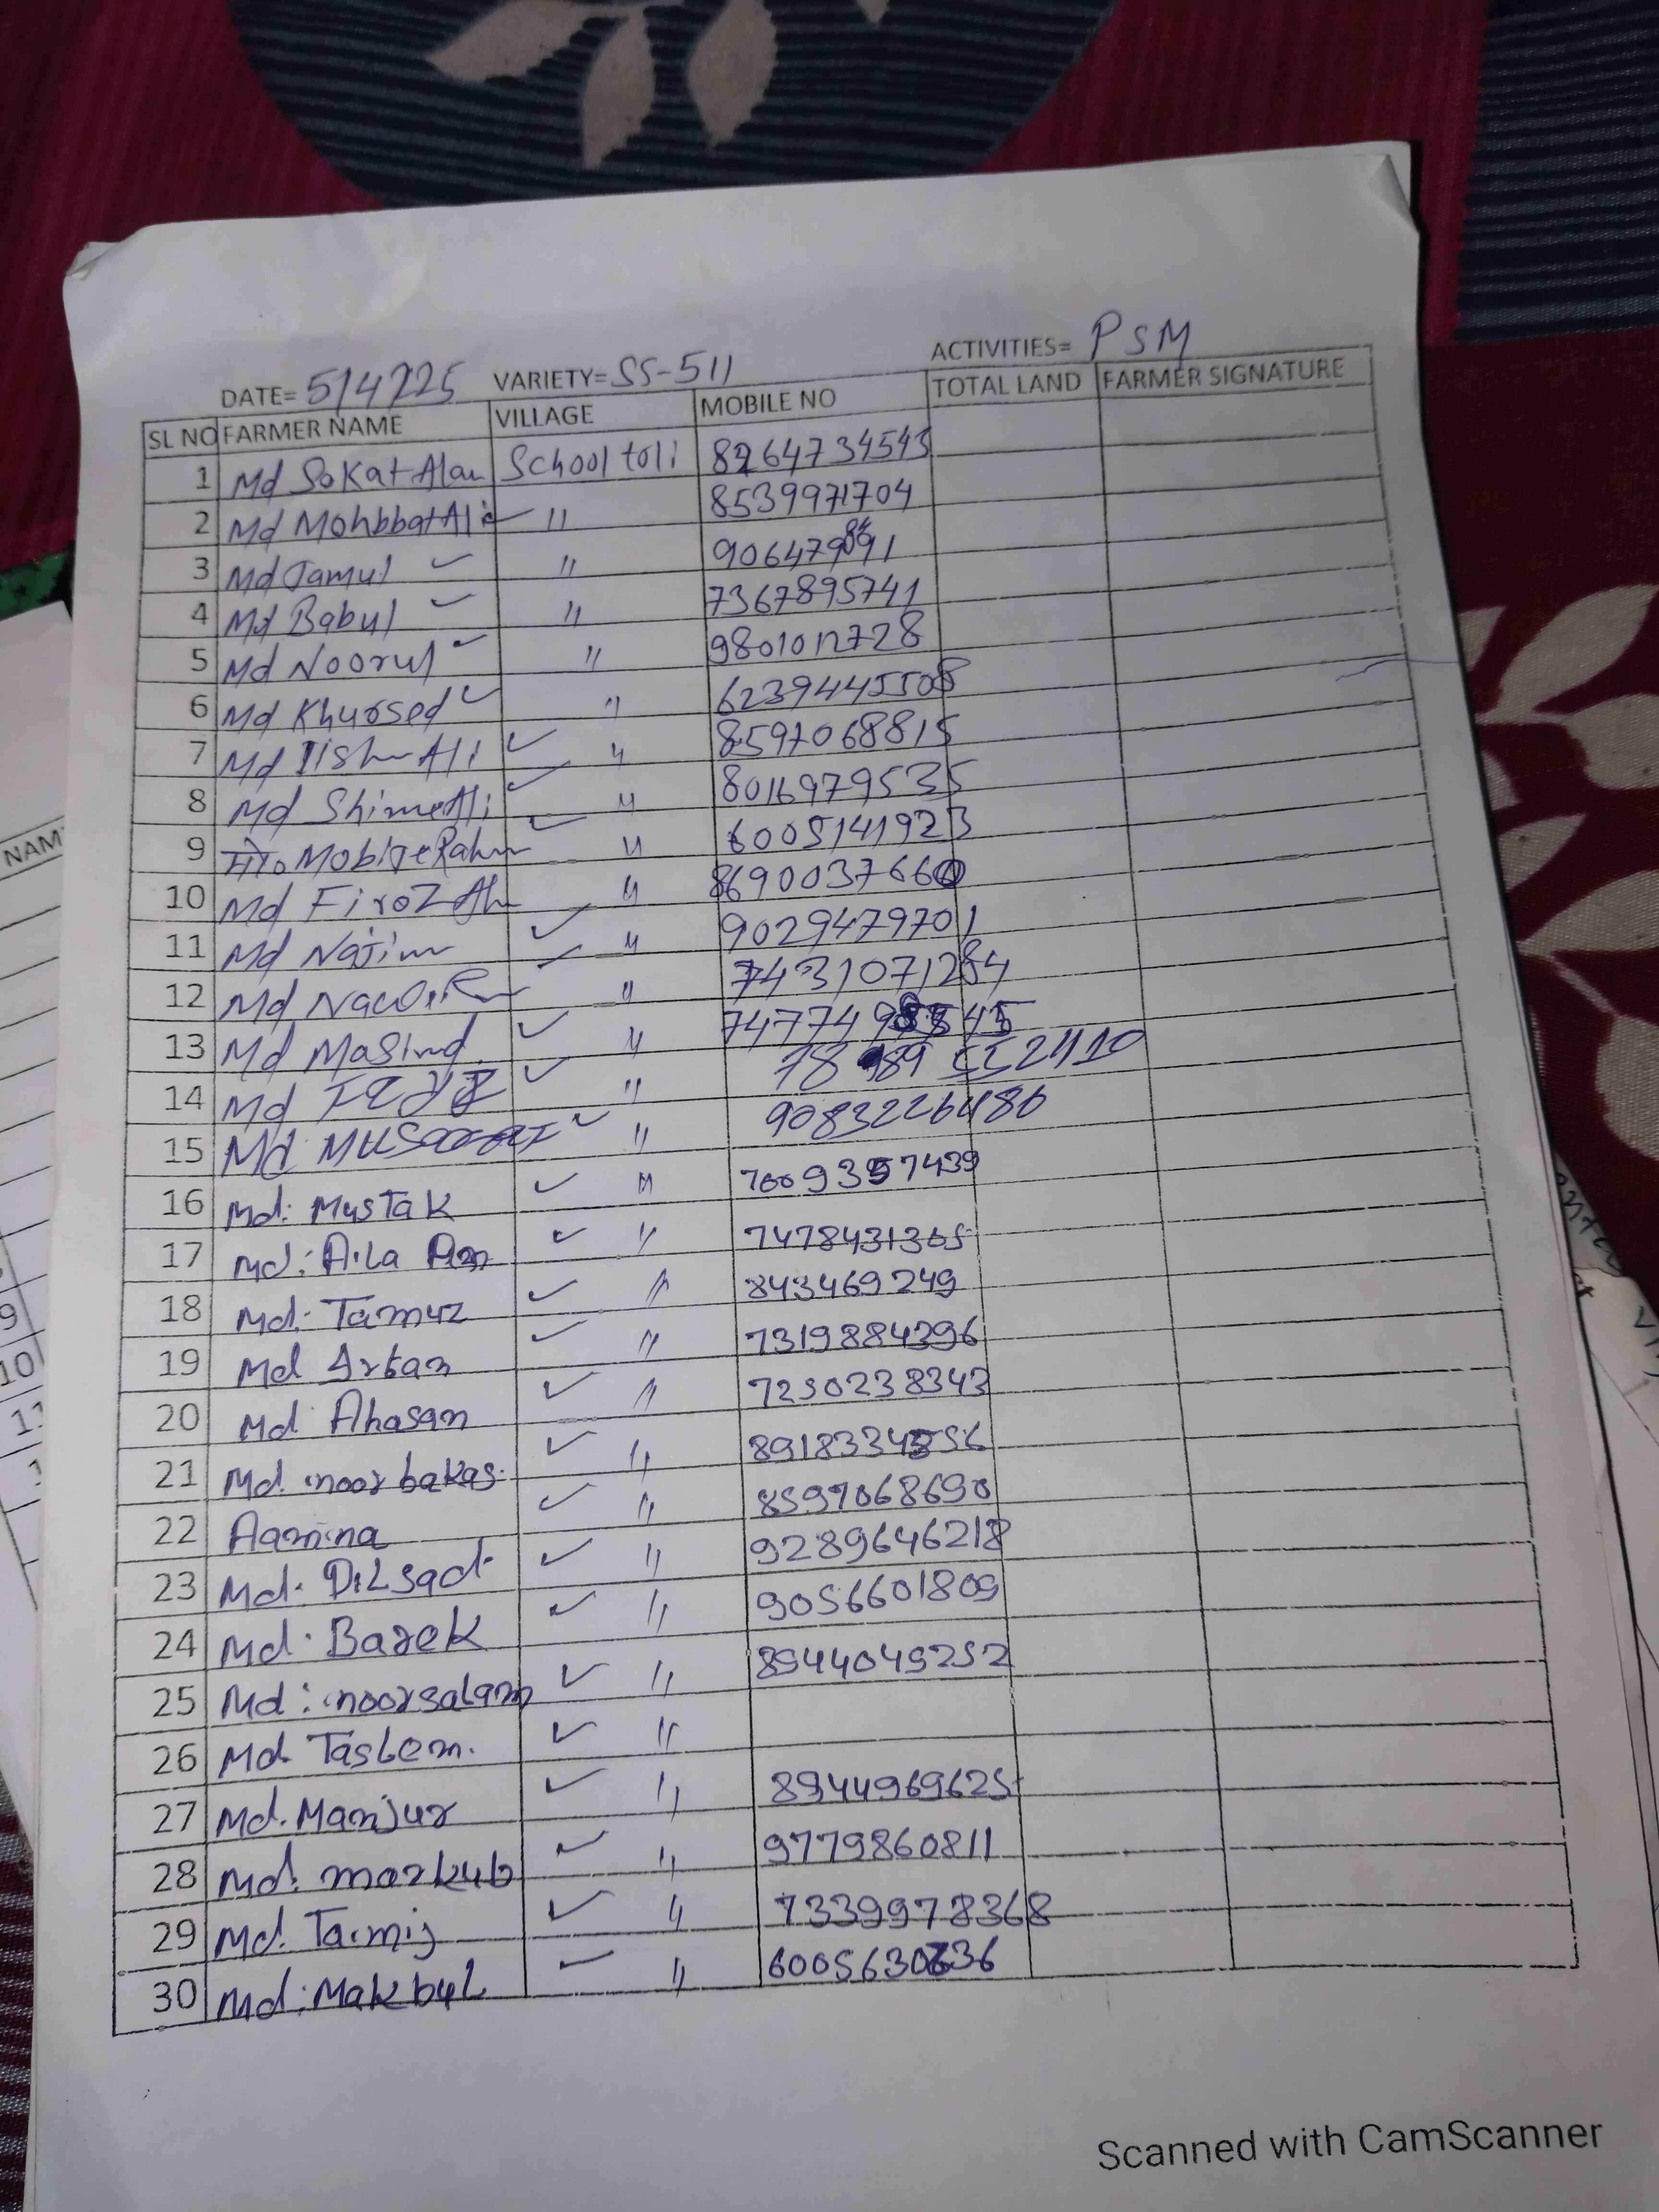 DATE= 5/4/225 VARIETY= SS-511 ACTIVITIES= PSM
SL NO FARMER NAME VILLAGE MOBILE NO TOTAL LAND FARMER SIGNATURE
1 Md SoKat Alam School toli 8264734543
2 Md Mohbbat Ali " 8539971704
3 Md Jamul "
4 Md Babul " 7367895741
5 Md Noorul " 9801012728
6 Md Khursed " 6239445508
7 Md Ali " 8597068815
8 Md " 8016979535
9 मो० " 6005141923
10 Md Firoz " 8690037660
11 Md Najim " 9029479701
12 Md " 7431071284
13 Md Masind "
14 Md "
15 Md " 9083226486
16 Md: MusTak " 7009357439
17 Md: " 7478431365
18 Md: Tamuz " 843469249
19 Md Irfan " 7319884396
20 Md Ahasan " 7250238343
21 Md. noor bakas. "
22 Aamina " 8597068690
23 Md. DiLsad " 9289646218
24 Md. Barek " 9056601809
25 Md: noorsalam " 8944049252
26 Md. Taslem. "
27 Md. Manjur " 8944969625
28 Md. markub " 9779860811
29 Md. Tamij " 7339978368
30 Md: MakbuL "
NAM
9
10
11
Scanned with CamScanner